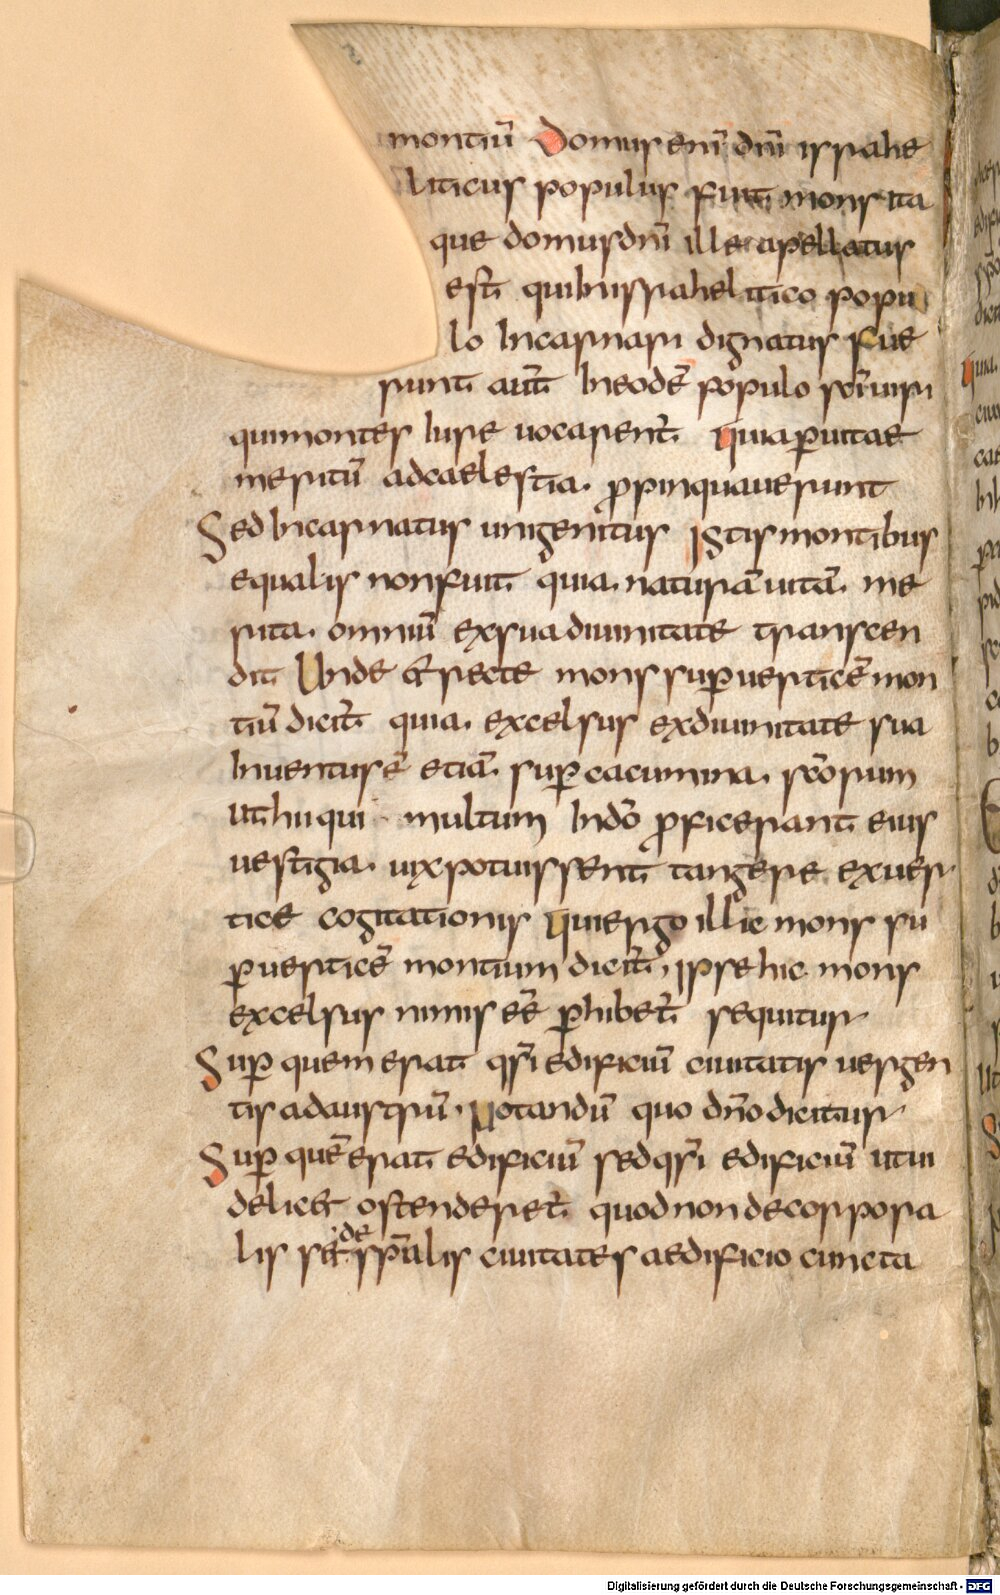 montiū Domus enī dn̄i israhe
liticus populus fuit mons ita
que domus dn̄i ille apellatus
est̄ qui inisrahelitico popu
lo Incarnari dignatus Fue
runt aut̄ Ineodē populo sc̄i uiri
qui montes Iure uocarent̄ Quia ꝑ uitae
meritū ad caelestia ꝓpinquauerunt
Sed Incarnatus unigenitus Istis montibus
equalis non fuit quia naturā uitā me
rita omniū ex sua diuinitate transcen
dit Unde & recte mons suꝑ uerticē mon
tiū dicit̄ quia excelsus ex diuinitate sua
Inuentus ē etiā suꝑ cacumina sc̄orum
Ut hii qui multum In dō ꝓficerant eius
uestigia uix potuissent tangere ex uer
tice cogitationis Qui ergo illic mons su
ꝑ uerticē montium dicit̄ ipse hic mons
excelsus nimis eē ꝑhibet̄ sequitur
Suꝑ quem erat qs̄i edificiū ciuitatis uergen
tis ad austrū Notandū quo dn̄o dicitur
Suꝑ quē erat edificiū sed qs̄i edificiū ut ui
delic& ostenderet̄ quod non de corpora
lis set de spīralis ciuitates aedificio cuncta
Digitalisierung gefördert durch die Deutsche Forschungsgemeinschaft - DFG